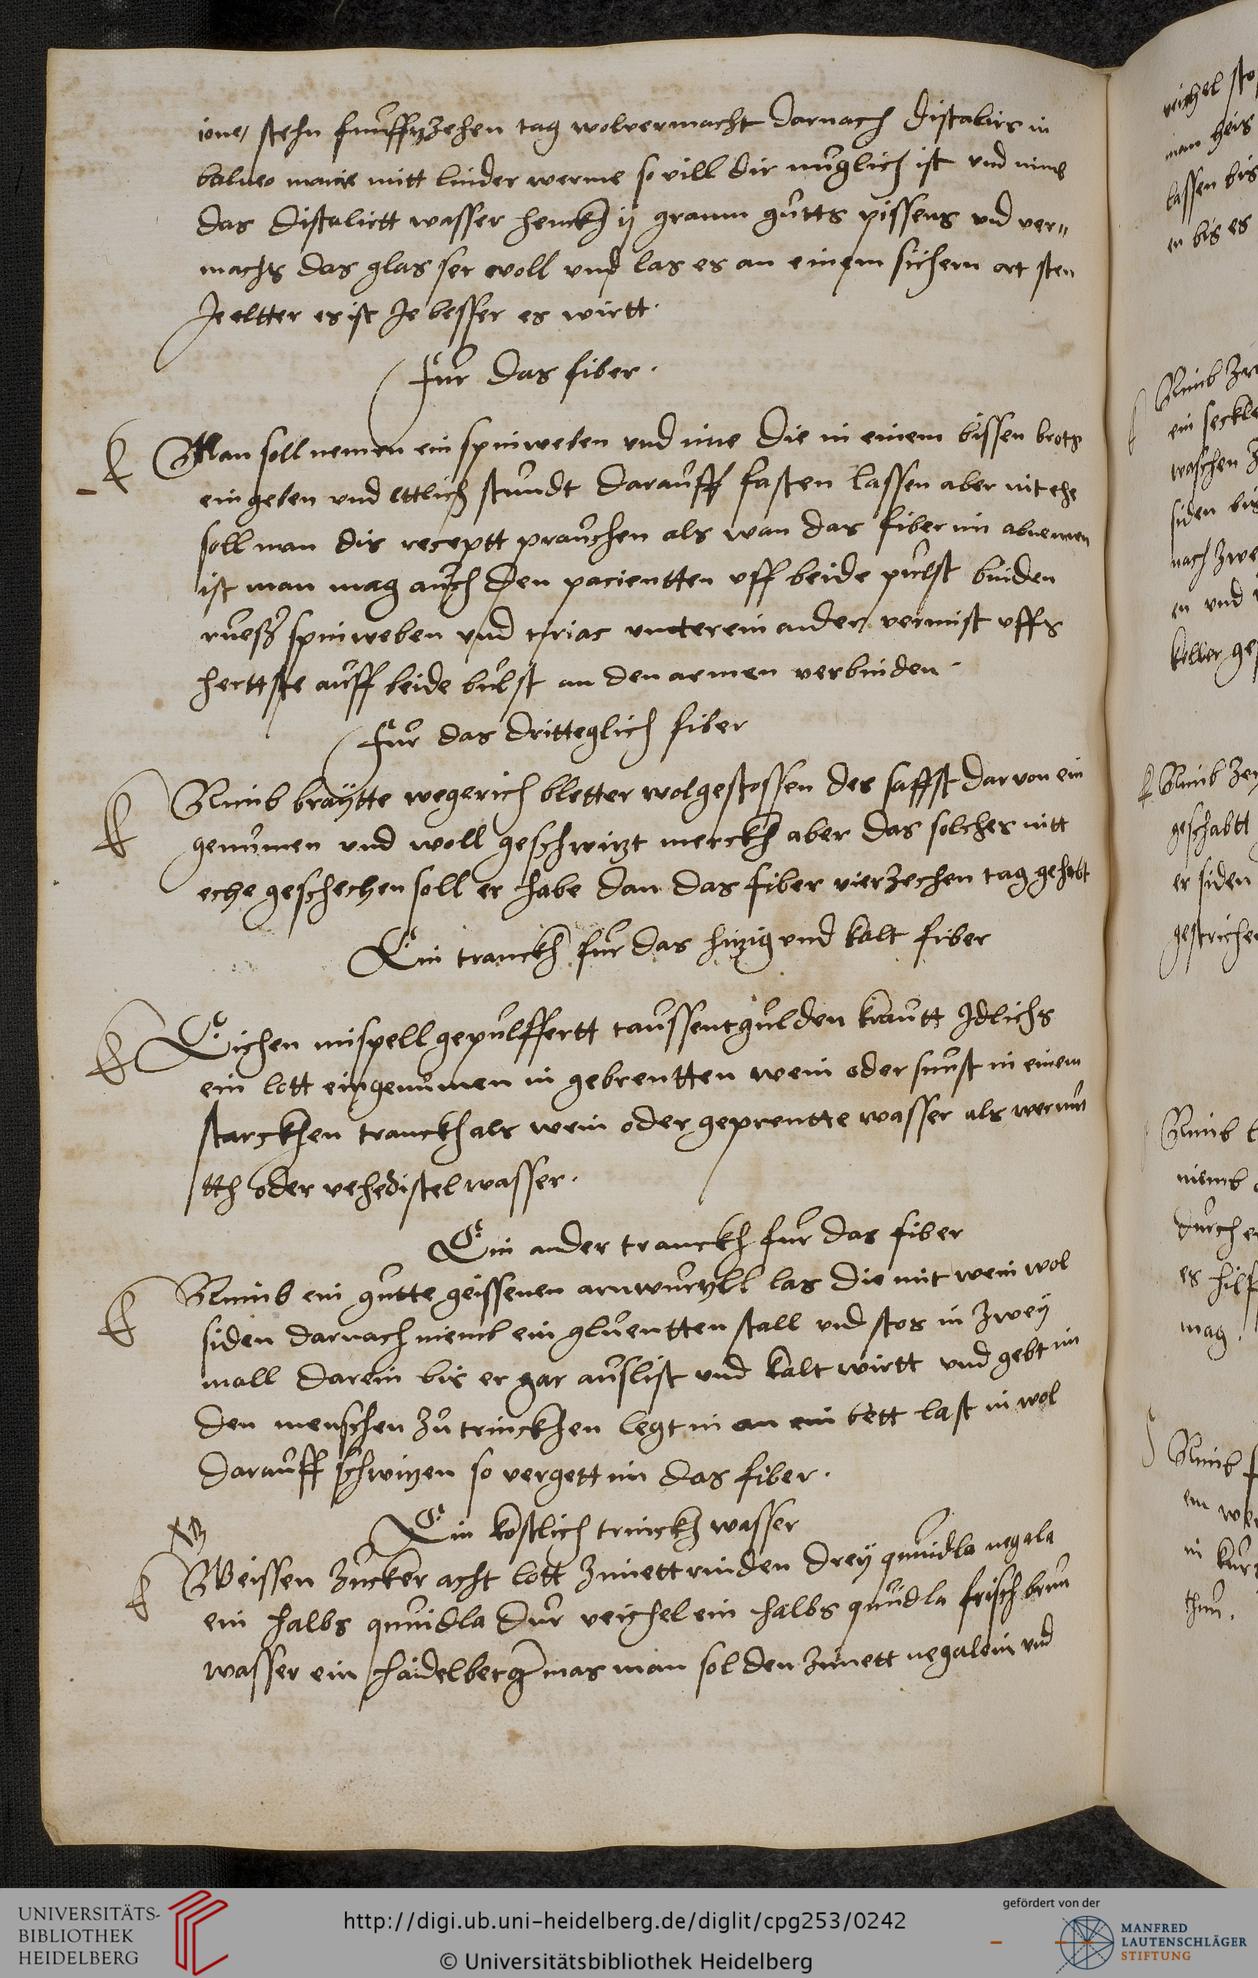 stehn funffzehen tag wolvermacht darnach distalirs in
balneo marie mitt linder werme so vill dir muglich ist und nimb
das distalirtt wasser henckh ij gramm gutts pissems und ver„
machs das glas ser woll und las es an einem sichern ort sten
Je eltter es ist Je besser es wirtt.
Fur das fiber.
Man soll nemen ein spinweben und ime die in einem bissen brots
ein geben und ettlich stundt darauff fasten lassen aber nit ehe
soll man dis receptt prauchen als wan das fiber im abnemen
ist man mag auch den pacientten uff beide pulst binden
ruesß spinweben und tiriac untereinander vermist uffs
herttste auff beide bulst an den armen verbinden.
Fur das dritteglich fiber
Nimb braytte wegerich bletter wol gestossen des safft darvon ein
genumen und woll geschwitzt merckh aber das solches nitt
eche geschechen soll er habe dan das fiber vierzechen tag gehabt
Ein tranckh fur das hitzig und kalt fiber
Eichen mispell gepulffertt taussentgulden krautt Idlichs
ein lott eingenumen in gebrentten wein oder sunst in einem
starckhen tranckh als wein oder geprentte wasser als wermu
tth oder vehedistel wasser.
Ein ander tranckh fur das fiber
Nimb ein gutte geissenen las die mit wein wol
siden darnach niemb ein gluentten stall und stos in zwey
mall darein bis er gar auslist und kalt wirtt und gebt im
den menschen zu trinckhen legt in an ein bett last in wol
darauff schwitzen so vergett im das fiber.
Ein kostlich trinckh wasser
Weissen zucker acht lott zimett rinden drey quindla negala
ein halbs quindla dur veichel ein halbs quindla frisch brun
wasser ein haidelberger mas man sol den zimett negalein und
UNIVERSITÄTS-
BIBLIOTHEK
HEIDELBERG
http://digi.ub.uni-heidelberg.de/diglit/cpg253/0242
© Universitätsbibliothek Heidelberg
gefördert von der
MANFRED
LAUTENSCHLÄGER
STIFTUNG